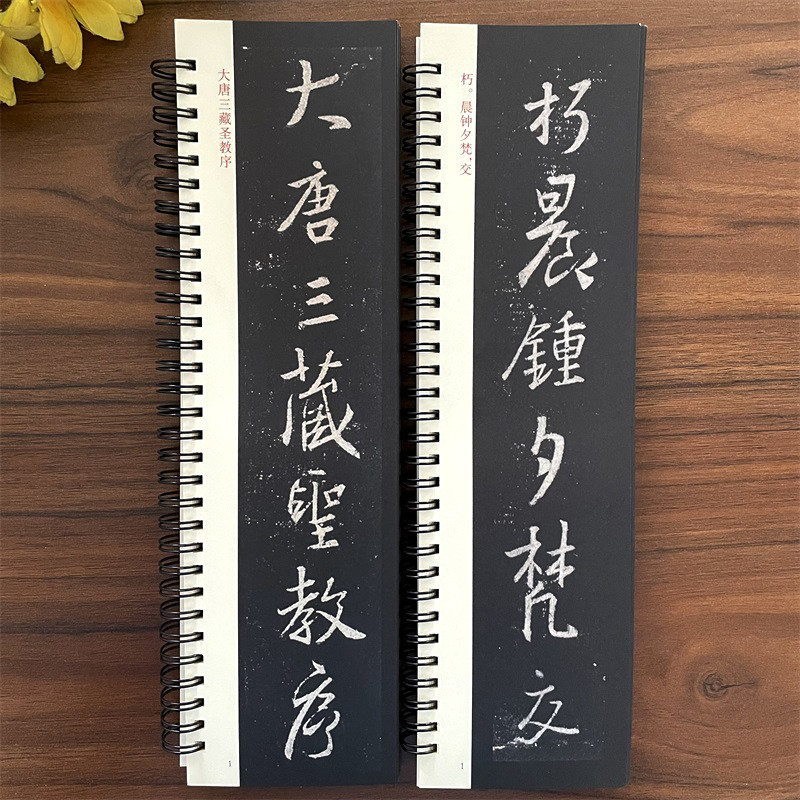 大唐三藏圣教序
大唐三藏聖教序
1
朽。晨钟夕梵，交
朽晨鍾夕梵交
1